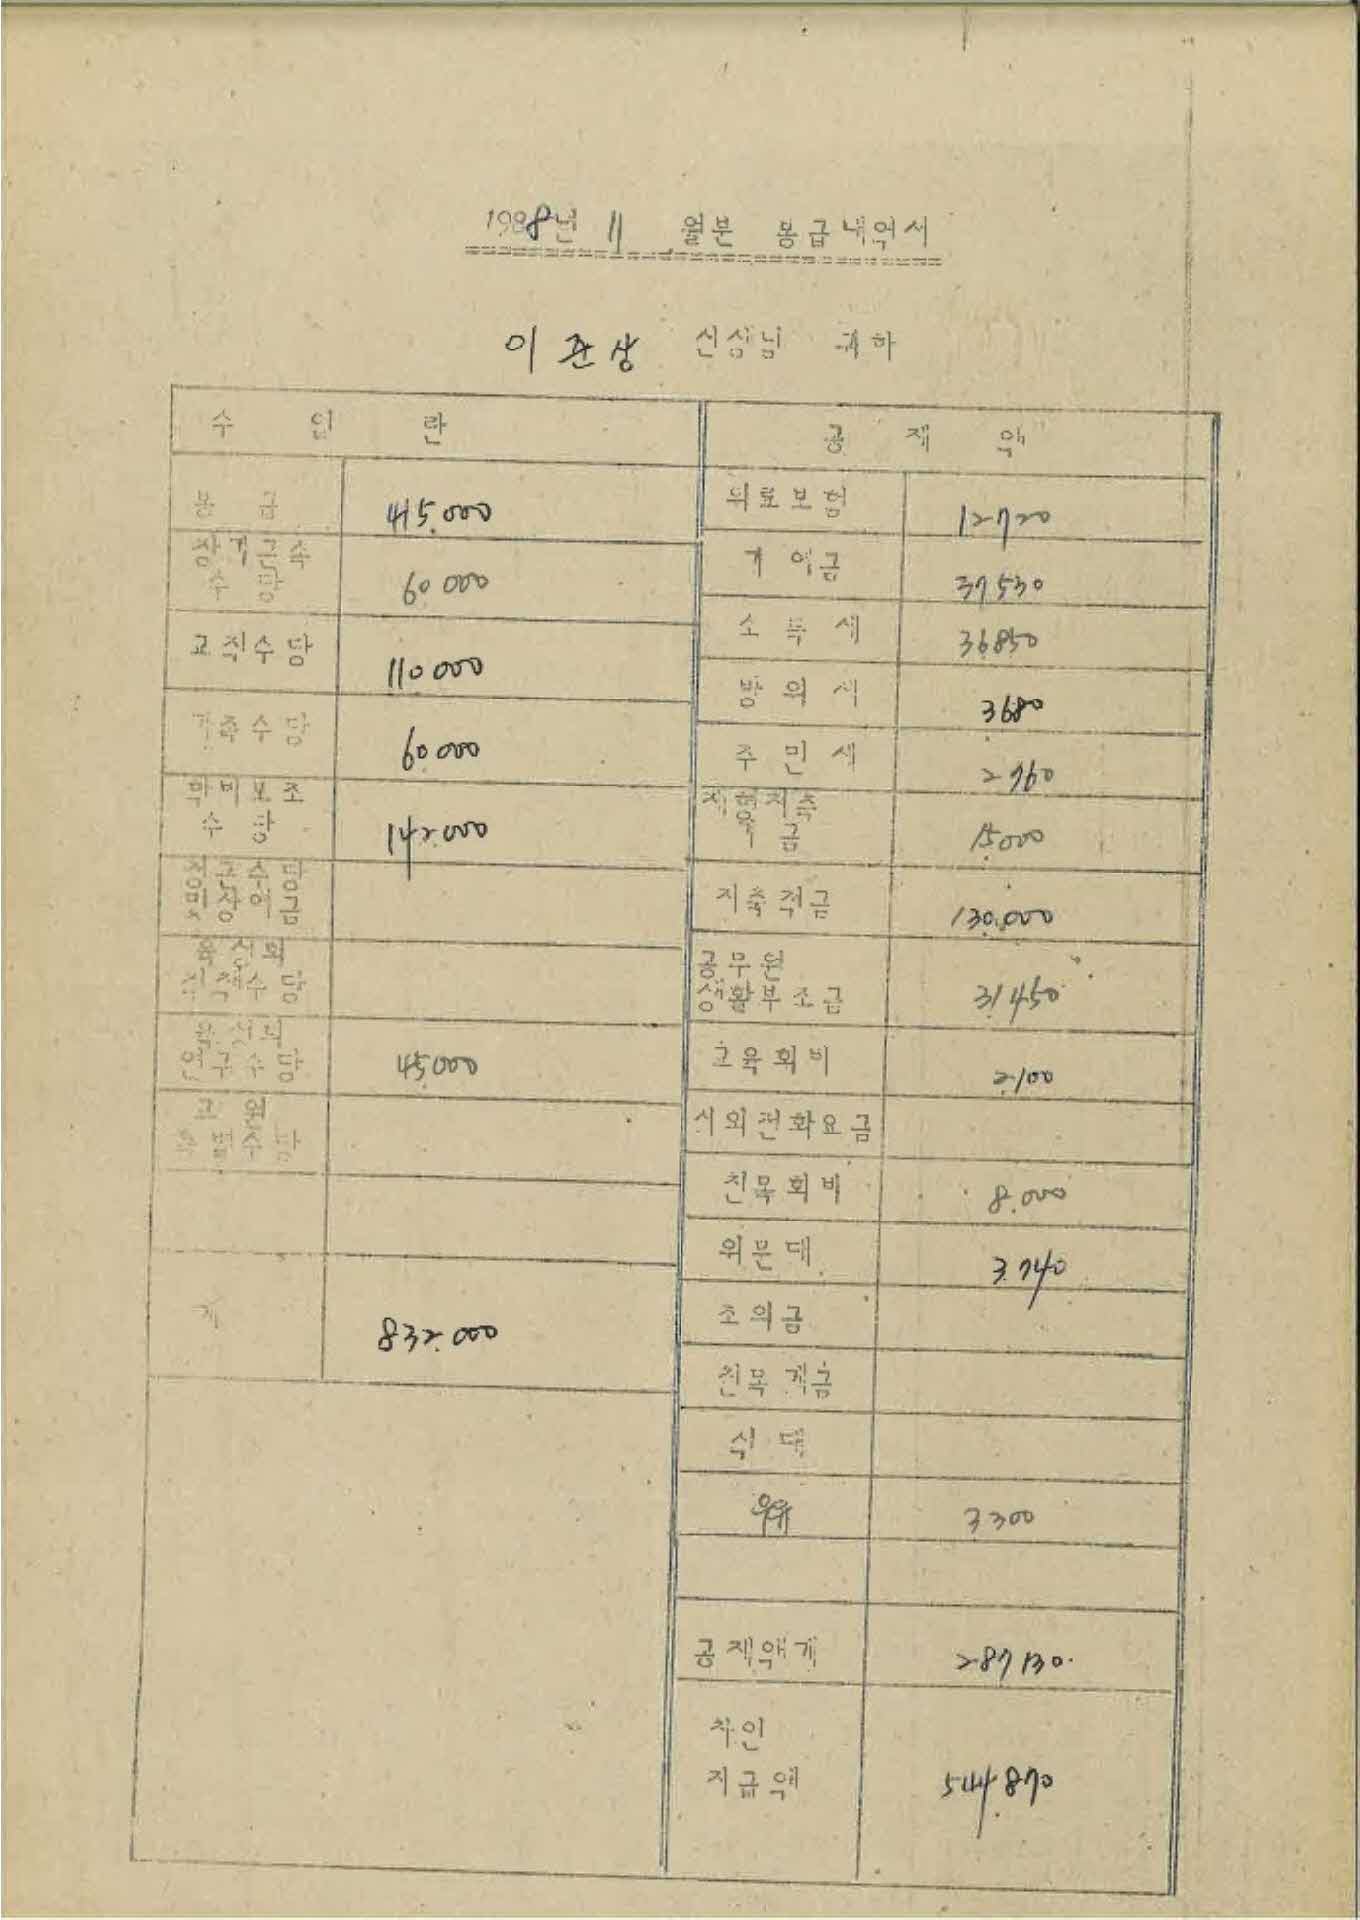 1988년 11 월분 봉급내역서
이준상 선생님 귀하
수 입 란
공 제 액
봉 급 415.000
장기근속
수 당 60.000
교직수당 110.000
가족수당 60.000
학비보조
수 당 142.000
정근수당
및장여금
육성회
직책수당
육성회
연구수당 45.000
교원
특별수당
계 832.000
의료보험 12720
기여금 37530
소득세 36850
방위세 3680
주민세 2760
재형저축
금 15.000
저축적금 130.000
공무원
생활부조금 31450
교육회비 2100
시외전화요금
친목회비 8.000
위문대 3.740
조의금
친목계금
식대
우유 3300
공제액계 287130
차인
지급액 544870